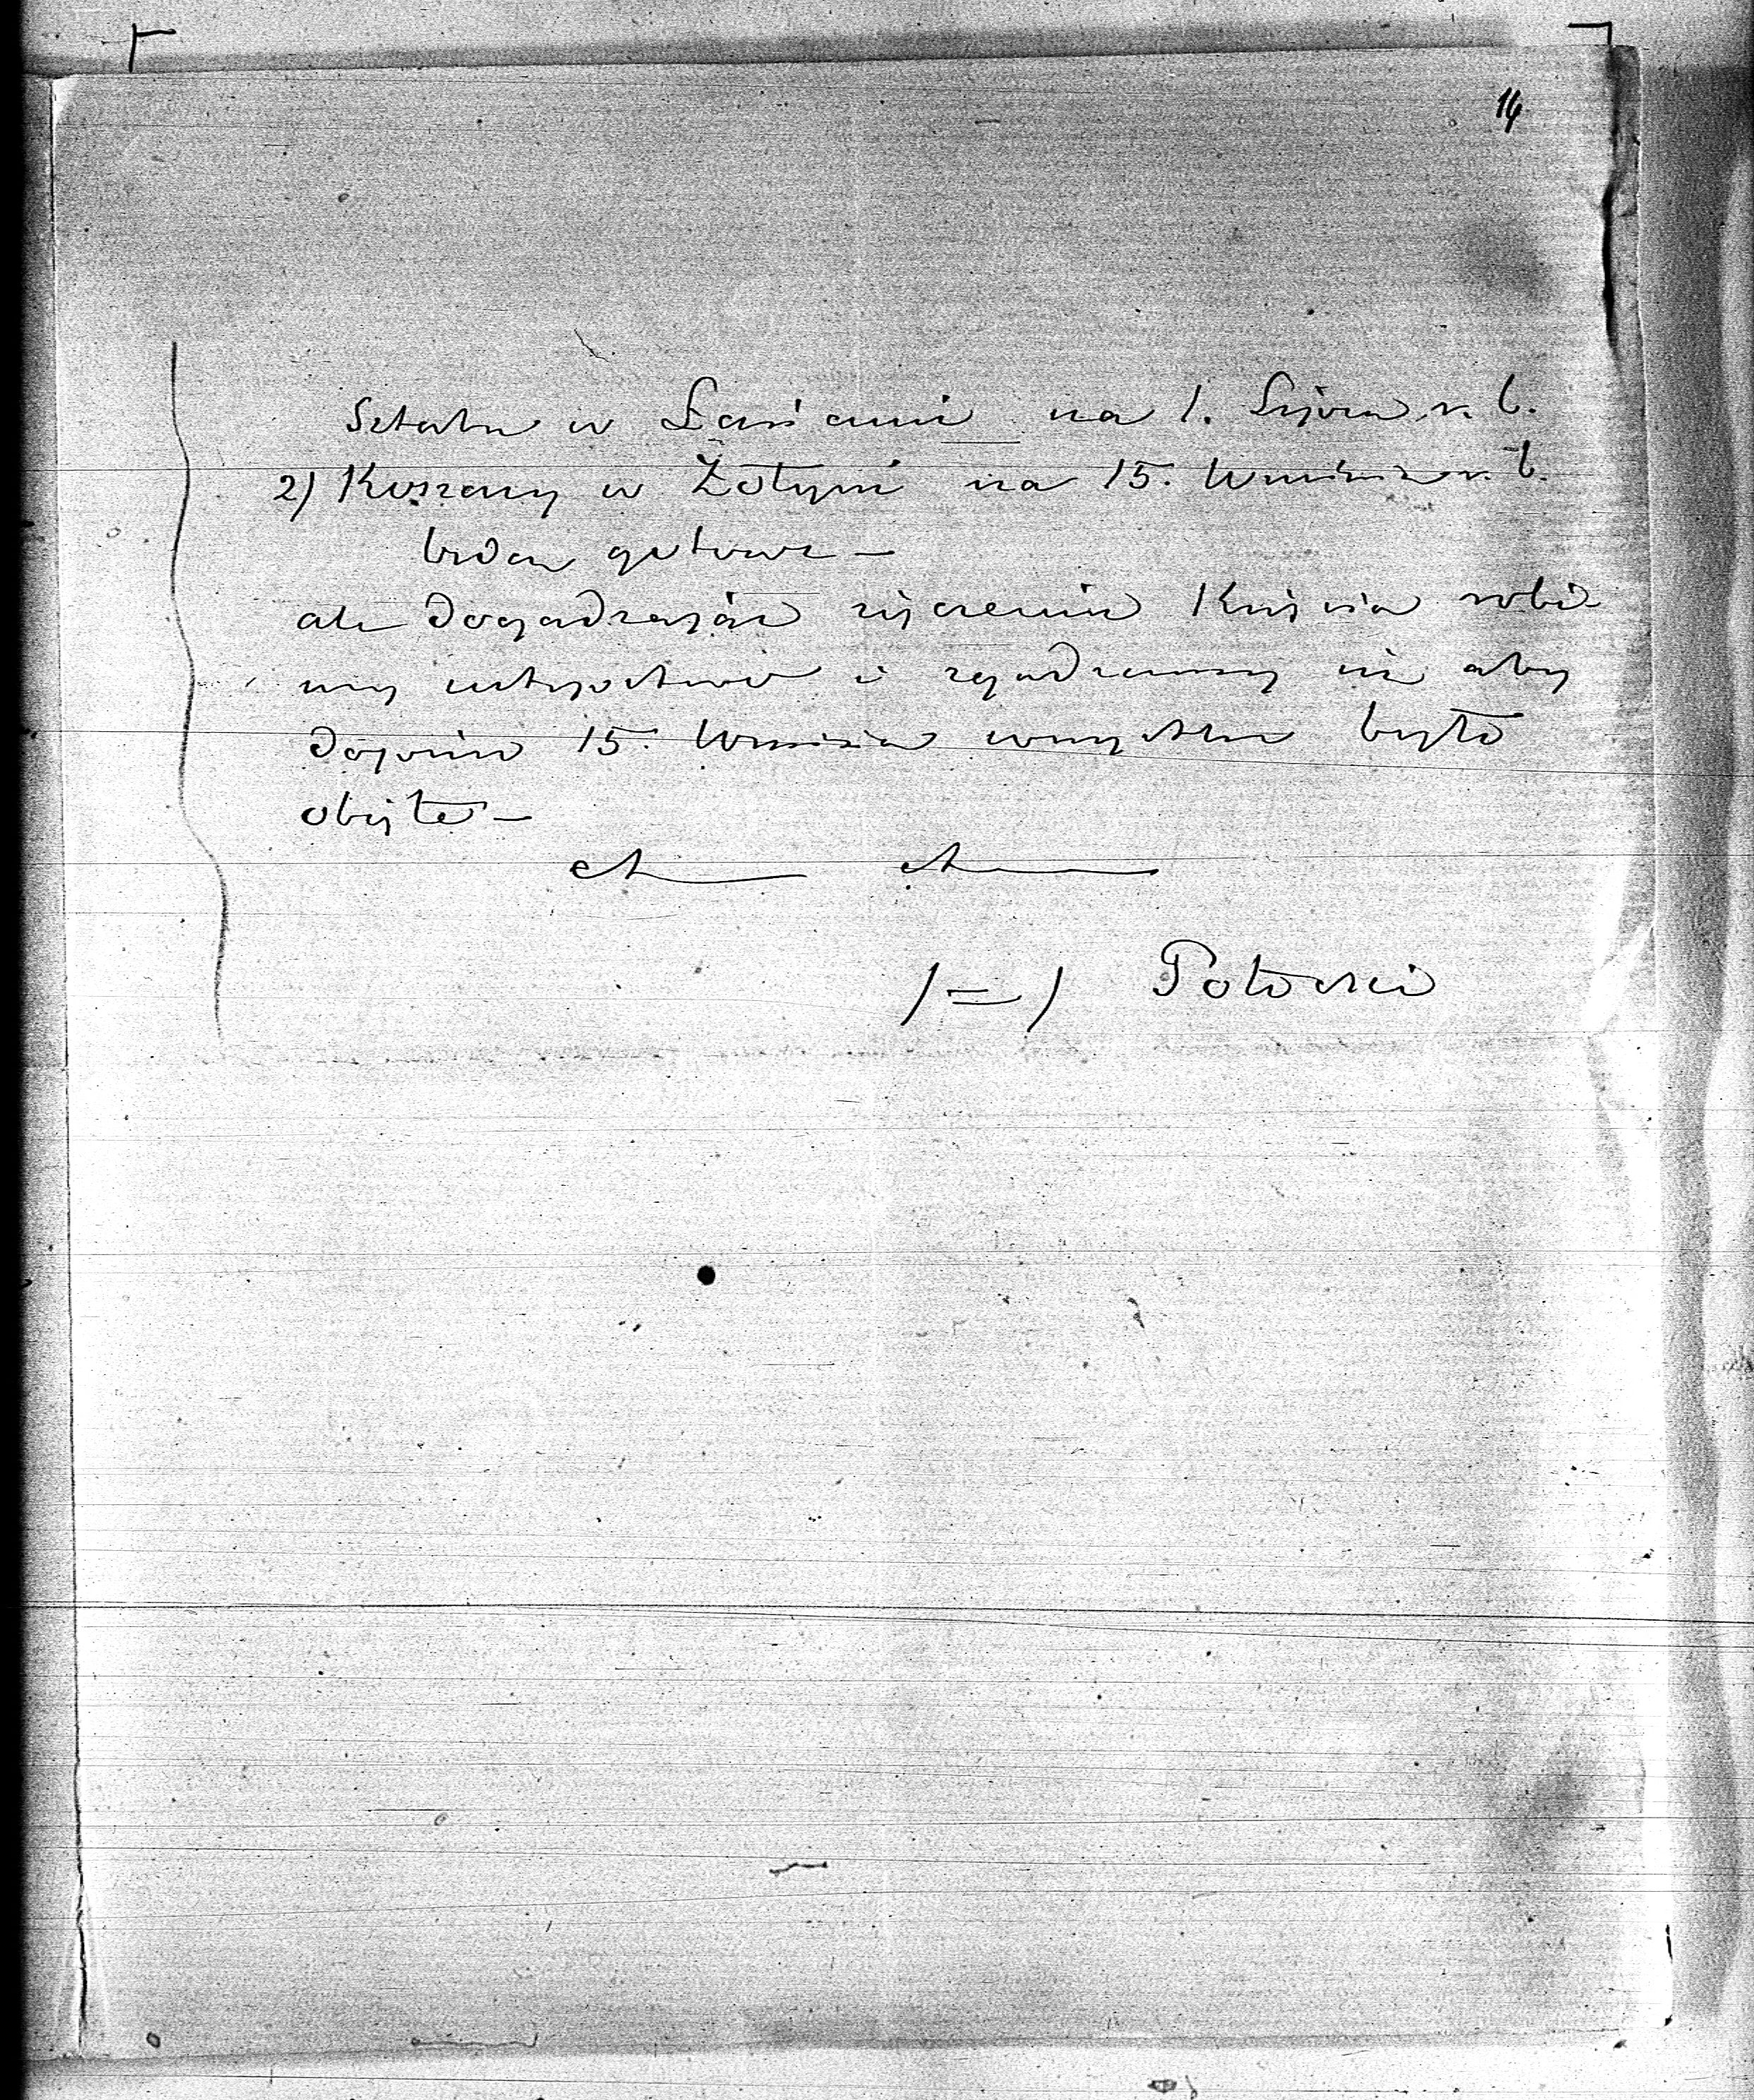 14
Sztabu w Łańcucie na 1. Lipca r. b.
2) Koszary w Żołyni na 15. Września r. b.
będą gotowe —
ale dogadzając życzeniu Księcia robi-
my ustępstwo i zgadzamy się aby
dopiero 15. Września wszystko było
objęte —
/=/ Potocki